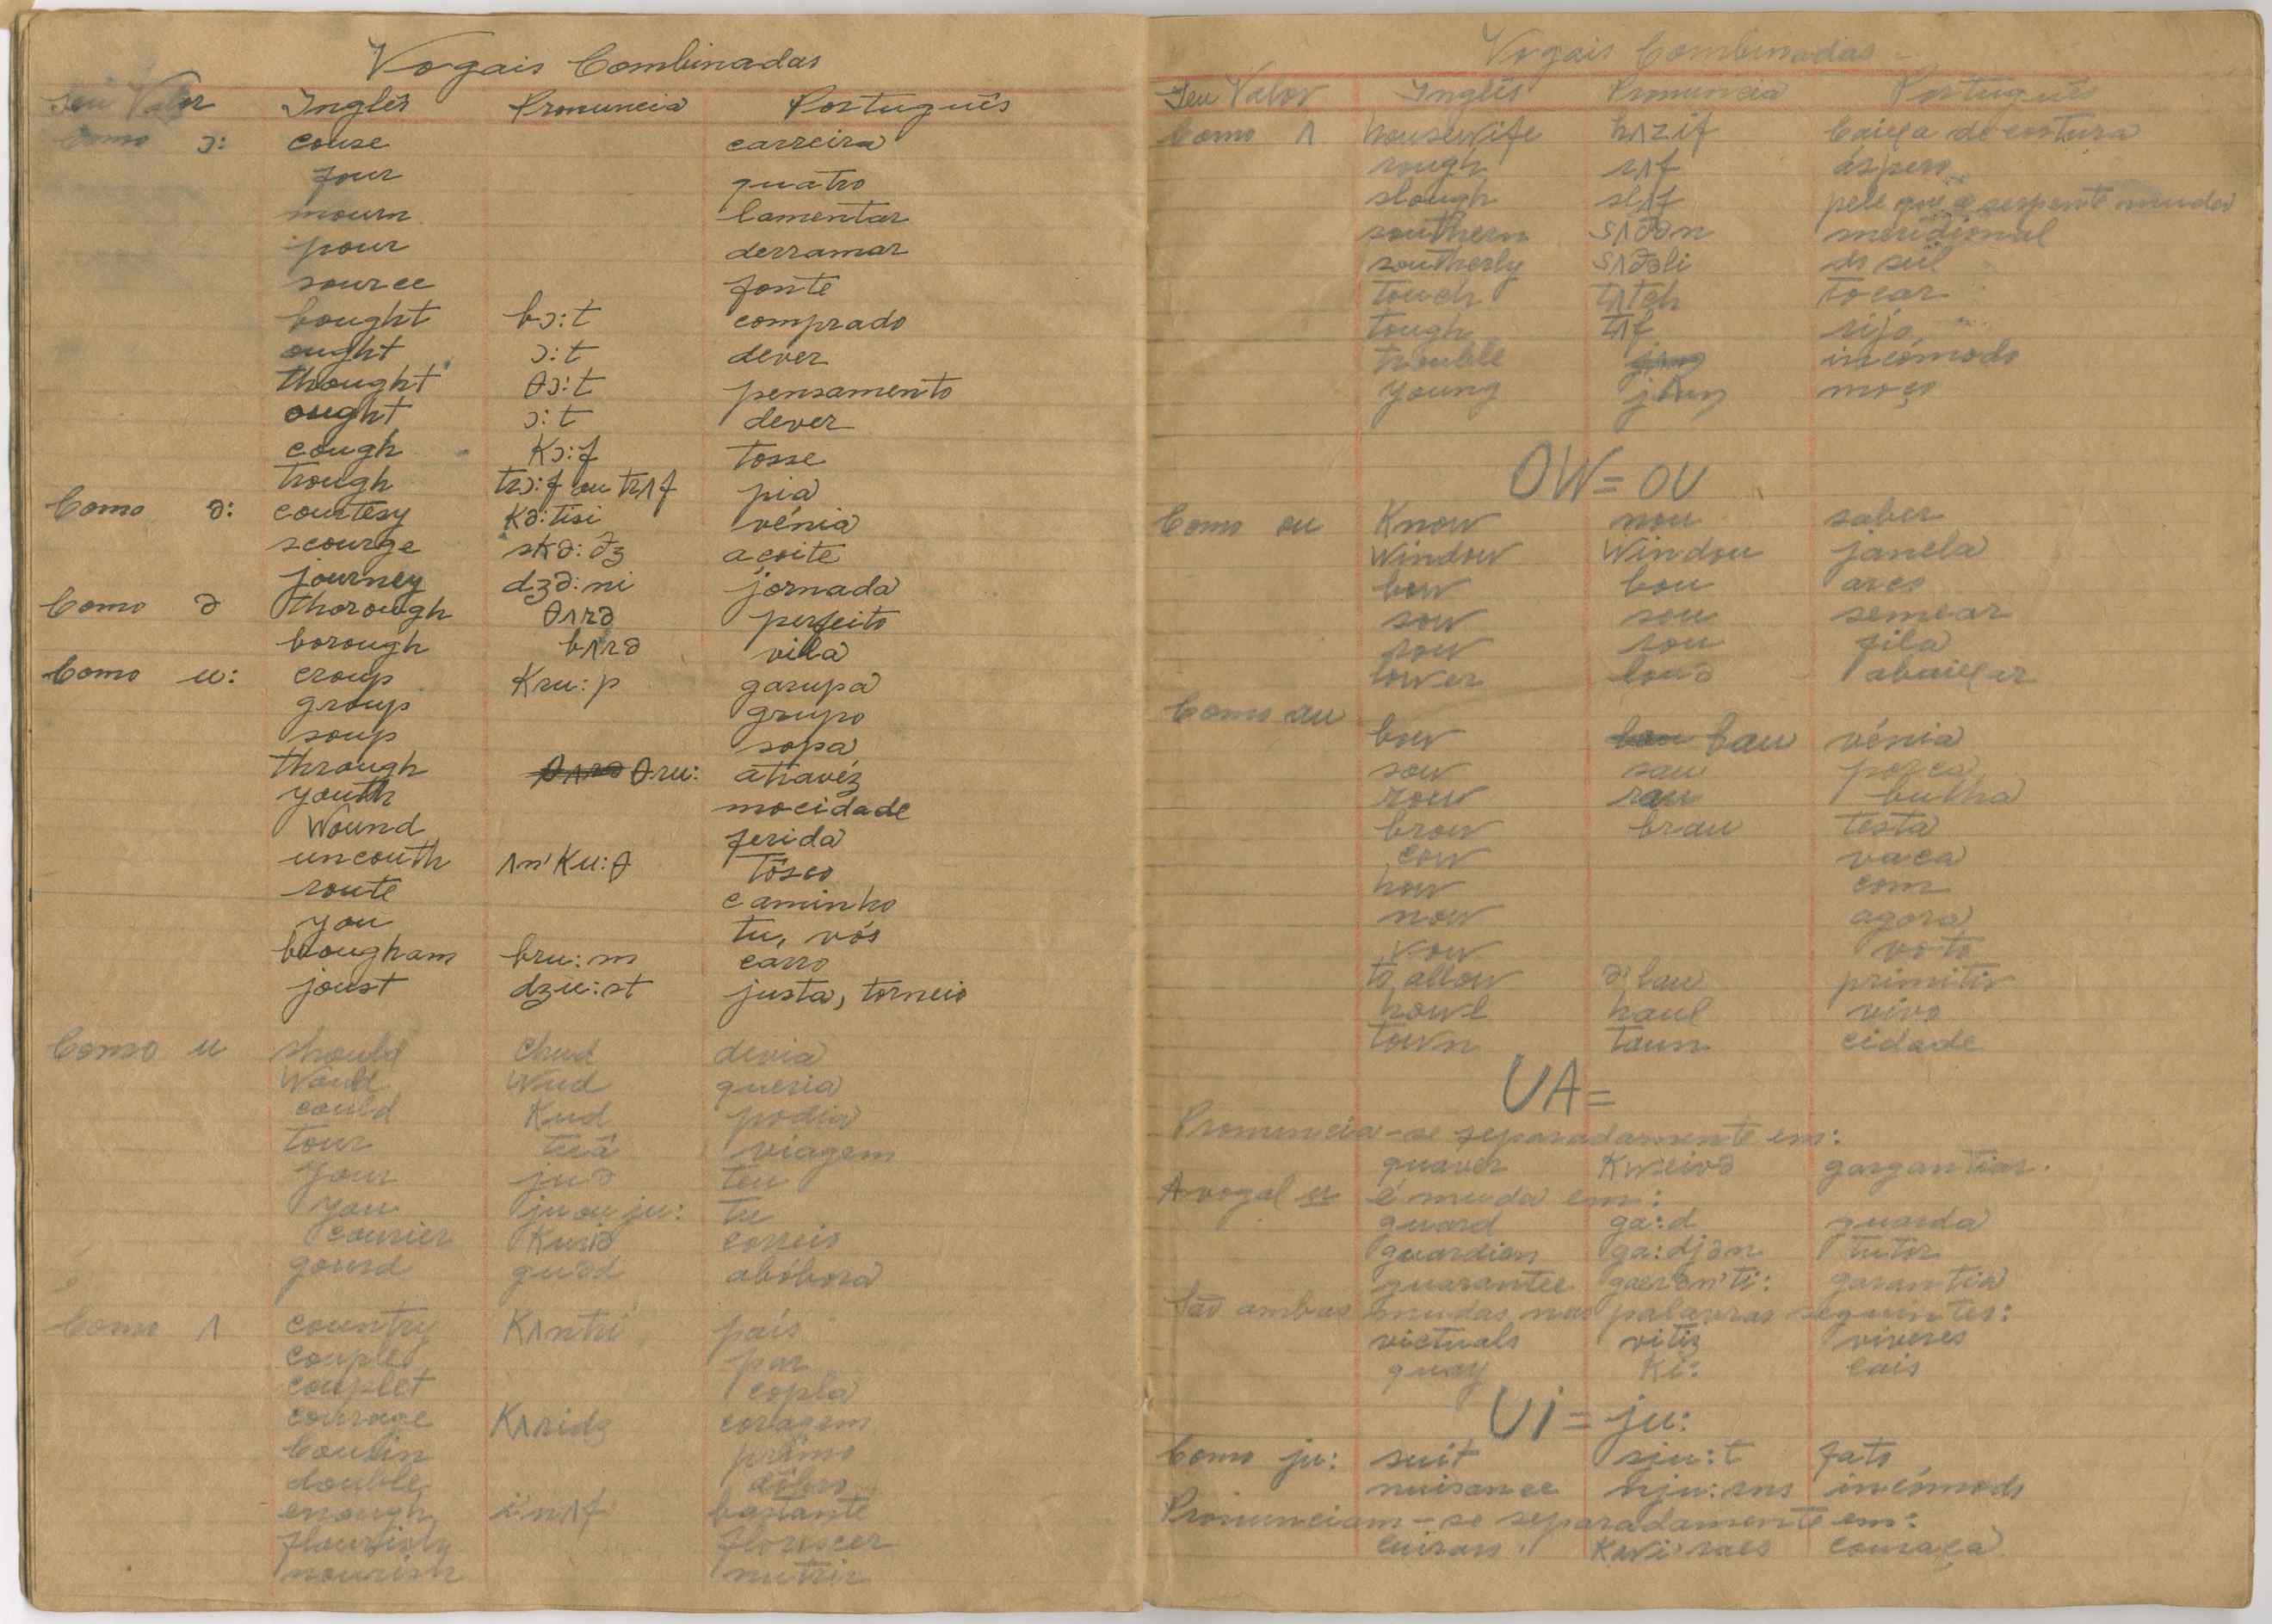 Vogais Combinadas
Seu Valor Inglês Pronuncia Português
Como ɔ: couse carreira
four quatro
mourn lamentar
pour derramar
source fonte
bought bɔ:t comprado
ought ɔ:t dever
thought θɔ:t pensamento
ought ɔ:t dever
cough Kɔ:f tosse
trough trɔ:f ou trʌf pia
Como ə: courtesy Kə:tisi vénia
scourge skə:dʒ açoite
journey dʒə:ni jornada
Como ə thorough θʌrə perfeito
borough bʌrə vila
Como u: croup Kru:p garupa
group grupo
soup sopa
through θʌrə θru: atravéz
youth mocidade
Wound ferida
uncouth ʌn'Ku:θ tôsco
route caminho
you tu, vós
brougham bru:m carro
joust dzu:st justa, torneio
Como u should chud devia
Would Wud queria
could Kud podia
tour tuâ viagem
Your juə teu
you ju ou ju: tu
courier Kuriə correio
gourd guəd abóbora
Como ʌ country Kʌntri país
couple par
couplet copla
courage Kʌridʒ coragem
Cousin primo
double dobro
enough i'nʌf bastante
flourish florescer
nourish nutrir
Vogais Combinadas
Seu Valor Inglês Pronuncia Português
Como ʌ housewife hʌzif Caixa de costura
rough rʌf áspero
slough slʌf pele que a serpente muda
southern sʌðən meridional
southerly sʌðəli do sul
touch tʌtch tocar
tough tʌf rijo
trouble incómodo
Young jʌŋ moço
OW = OU
Como ou Know nou saber
Window Windou janela
bow bou arco
sow sou semear
row rou fila
lower louə abaixar
Como au bow bou bau vénia
sow sau porca
row rau bulha
brow brau testa
cow vaca
how com
now agora
vow voto
to allow ə'lau primitir
howl haul vivo
town taun cidade
UA =
Pronuncia-se separadamente em:
quaver Kweivə gargantiar.
A vogal u é muda em:
guard ga:d guarda
guardian ga:djən tutor
guarantee gaerən'ti: garantia
São ambas mudas nas palavras seguintes:
victuals vitlz víveres
quay Ki: cais
UI = ju:
Como ju: suit sju:t fato
nuisance nju:sns incómodo
Pronunciam-se separadamente em:
cuirass Kwi'raes couraça